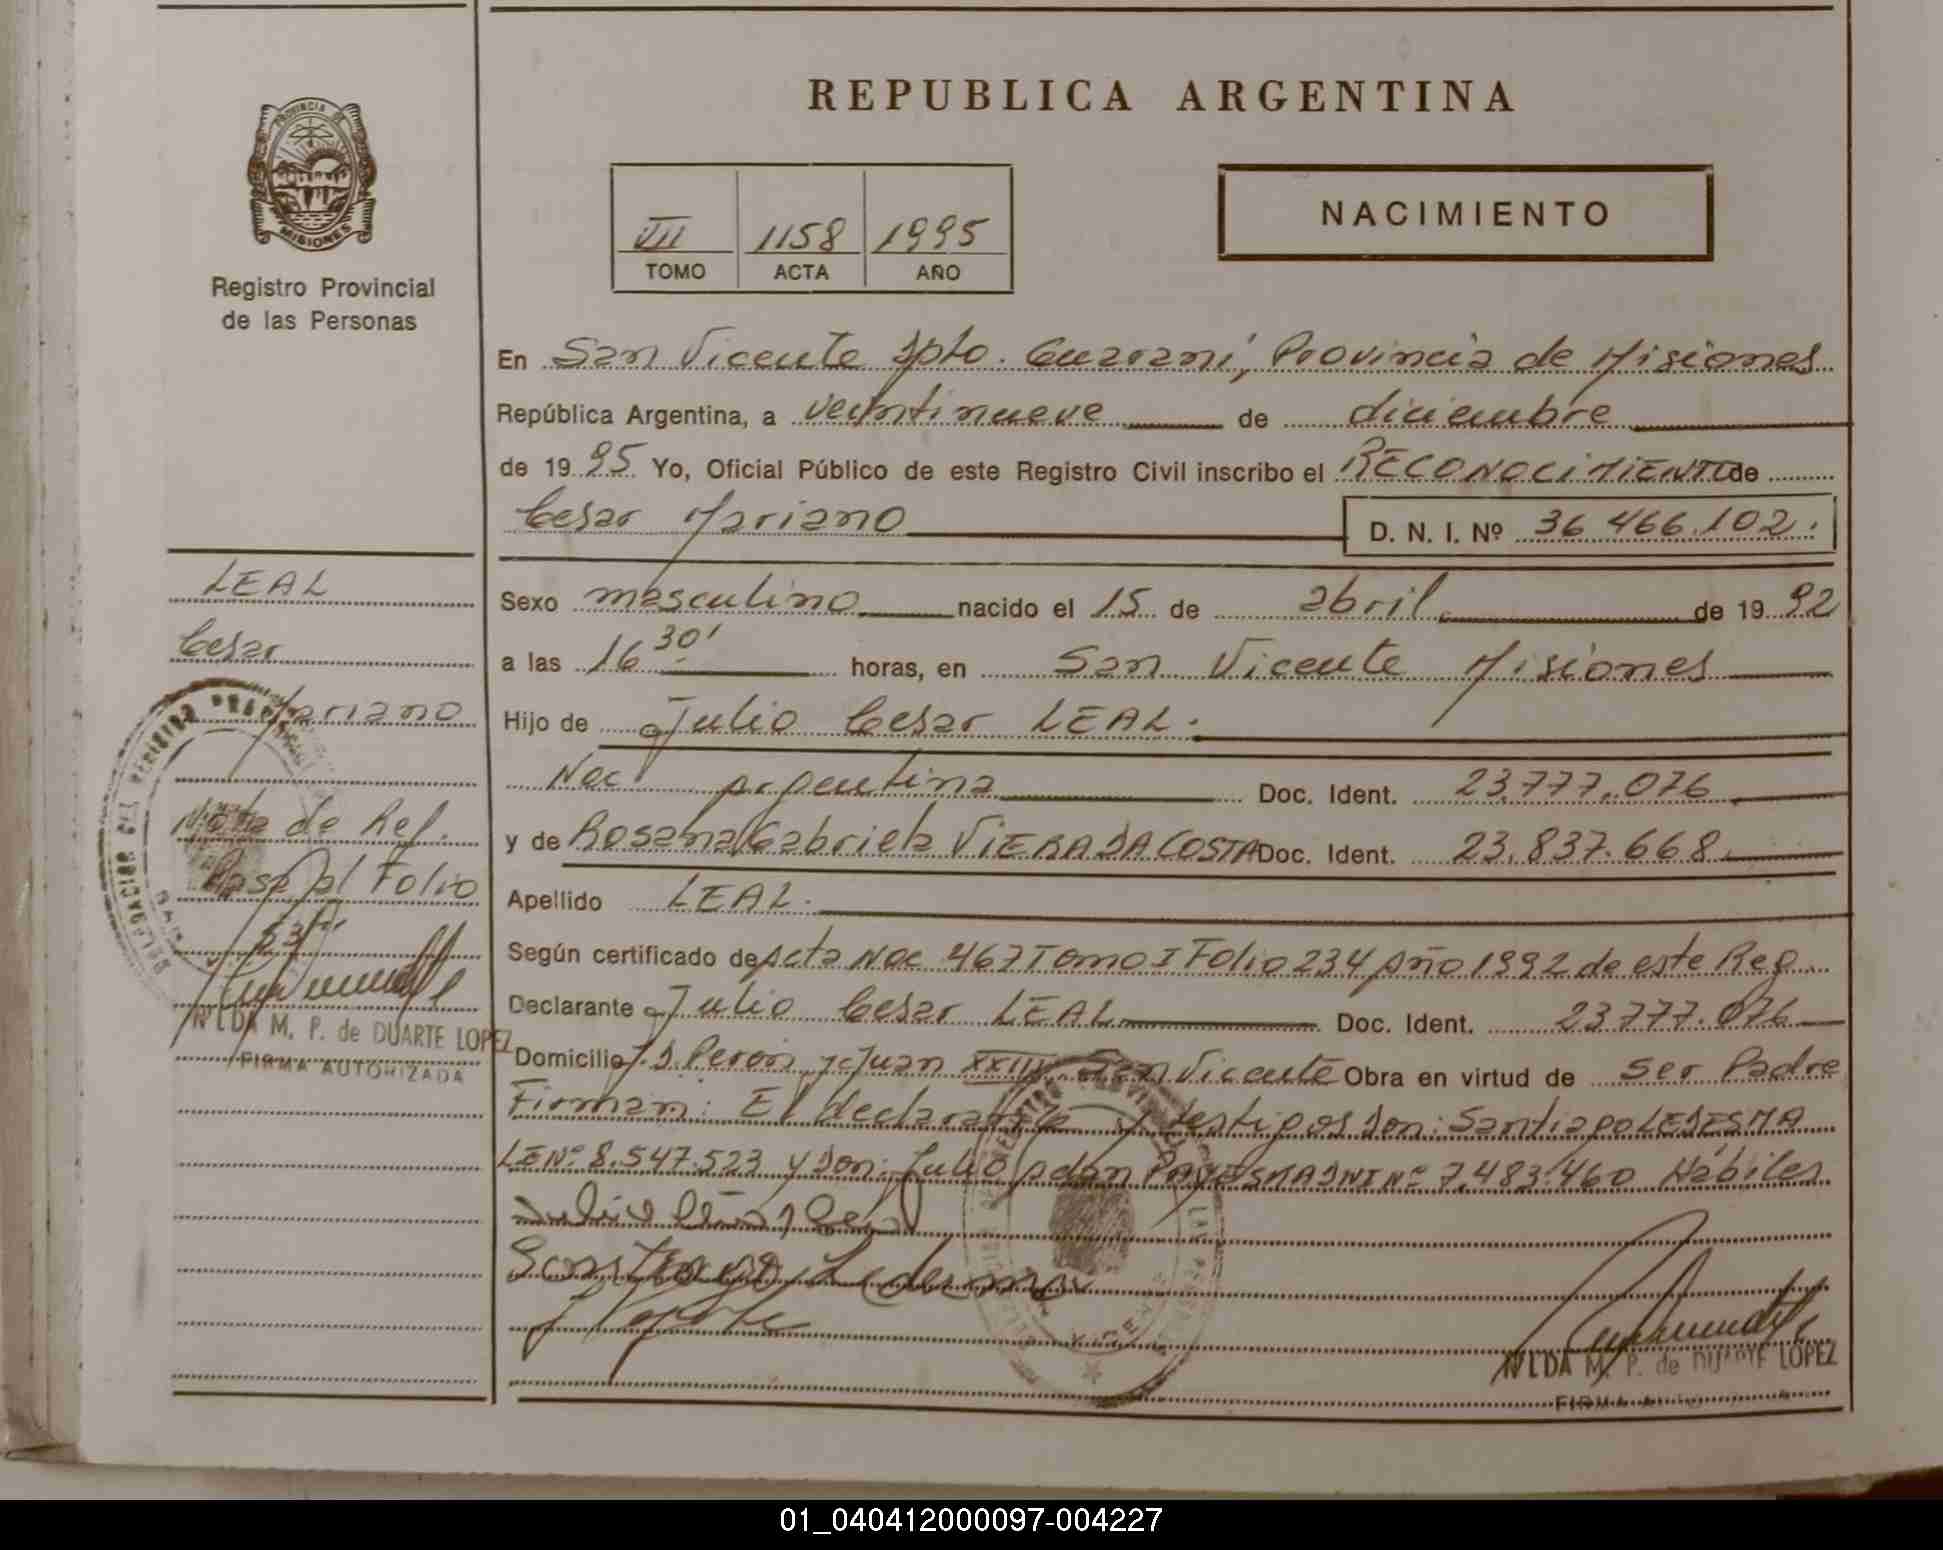 REPUBLICA ARGENTINA
PROVINCIA DE
MISIONES
Registro Provincial
de las Personas
VII 1158 1995
TOMO ACTA AÑO
NACIMIENTO
En San Vicente Dpto. Guaraní, Provincia de Misiones
República Argentina, a veintinueve de diciembre
de 19 95 Yo, Oficial Público de este Registro Civil inscribo el RECONOCIMIENTO de
Cesar Mariano D. N. I. Nº 36 466.102.
Sexo masculino nacido el 15 de abril de 19 92
a las 16 30' horas, en San Vicente Misiones
Hijo de Julio Cesar LEAL.
Nac argentina Doc. Ident. 23.777.076
y de Rosana Gabriela VIERA DA COSTA Doc. Ident. 23.837.668
Apellido LEAL.
Según certificado de Acta Nac 467 Tomo I Folio 234 Año 1992 de este Reg.
Declarante Julio Cesar LEAL Doc. Ident. 23777.076
Domicilio J.D. Peron y Juan XXIII San Vicente Obra en virtud de ser Padre
Firman: El declarante y testigos Don: Santiago LEDESMA
LE Nº 8.547.523 y Don: Julio Adan DNI Nº 7.483.460 Hábiles
Santiago Ledesma
NILDA M. P. de DUARTE LOPEZ
FIRMA
LEAL
Cesar
Mariano
Nota de Ref.
Pasa al Folio
53
NILDA M. P. de DUARTE LOPEZ
FIRMA AUTORIZADA
01_040412000097-004227